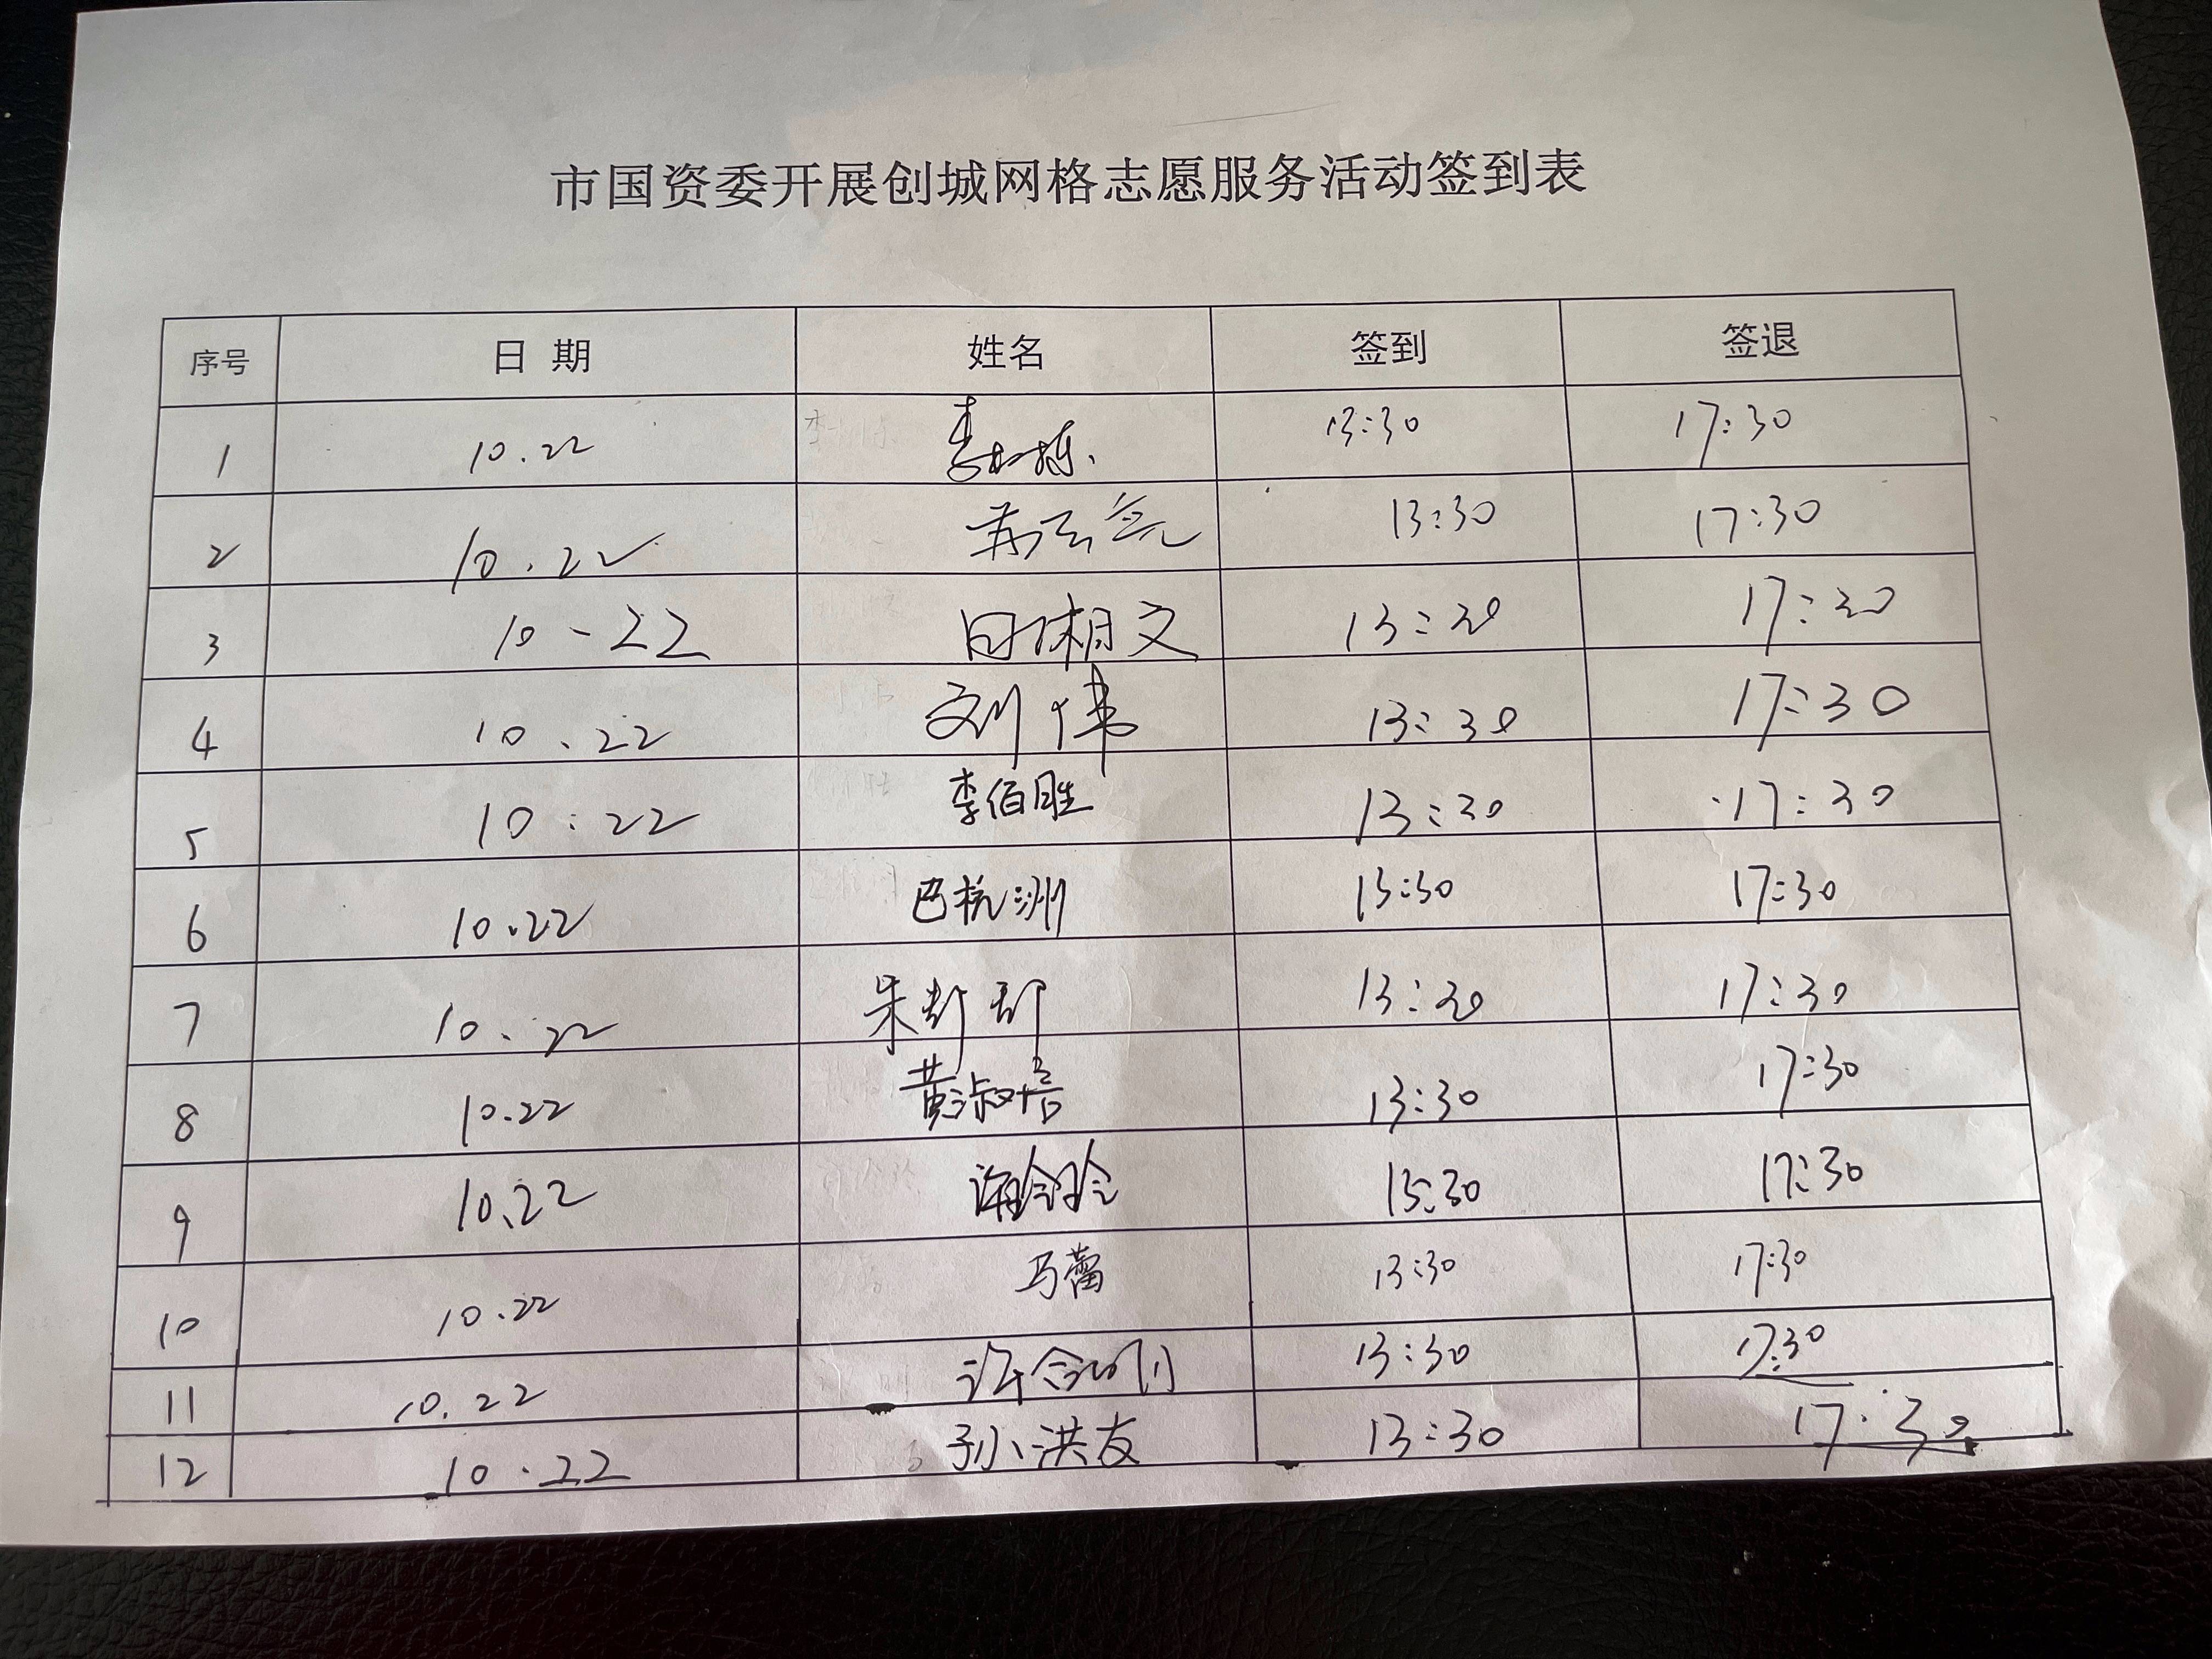 市国资委开展创城网格志愿服务活动签到表
序号 日期 姓名 签到 签退
1 10.22 13:30 17:30
2 10.22 13:30 17:30
3 10-22 田湘文 13:30 17:30
4 10.22 刘伟 13:30 17:30
5 10:22 李佰胜 13:30 17:30
6 10.22 巴杭洲 13:30 17:30
7 10.22 朱 13:30 17:30
8 10.22 黄淑培 13:30 17:30
9 10.22 13:30 17:30
10 10.22 马蕾 13:30 17:30
11 10.22 许 13:30 17:30
12 10.22 孙洪友 13:30 17:30